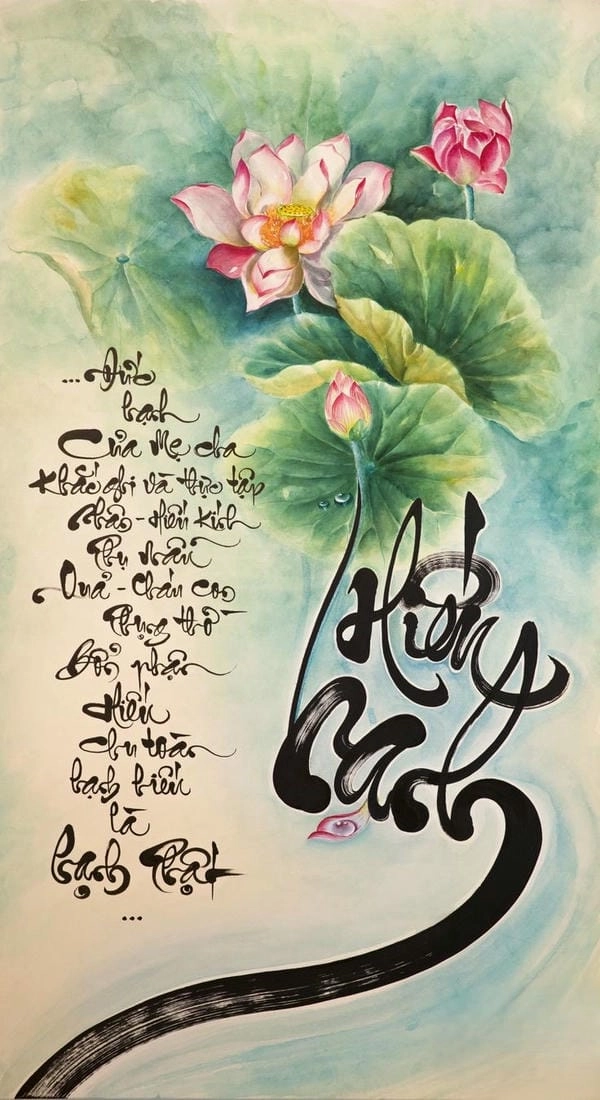 ...Đức
hạnh
Của Mẹ cha
Khắc ghi và thực tập
Nhân - Hiếu Kính
Thụ nhận
Quả - Cháu con
Phụng thờ
Bổn phận
Hiếu
chu toàn
hạnh hiếu
là
hạnh Phật
...
Hiếu
Hạnh